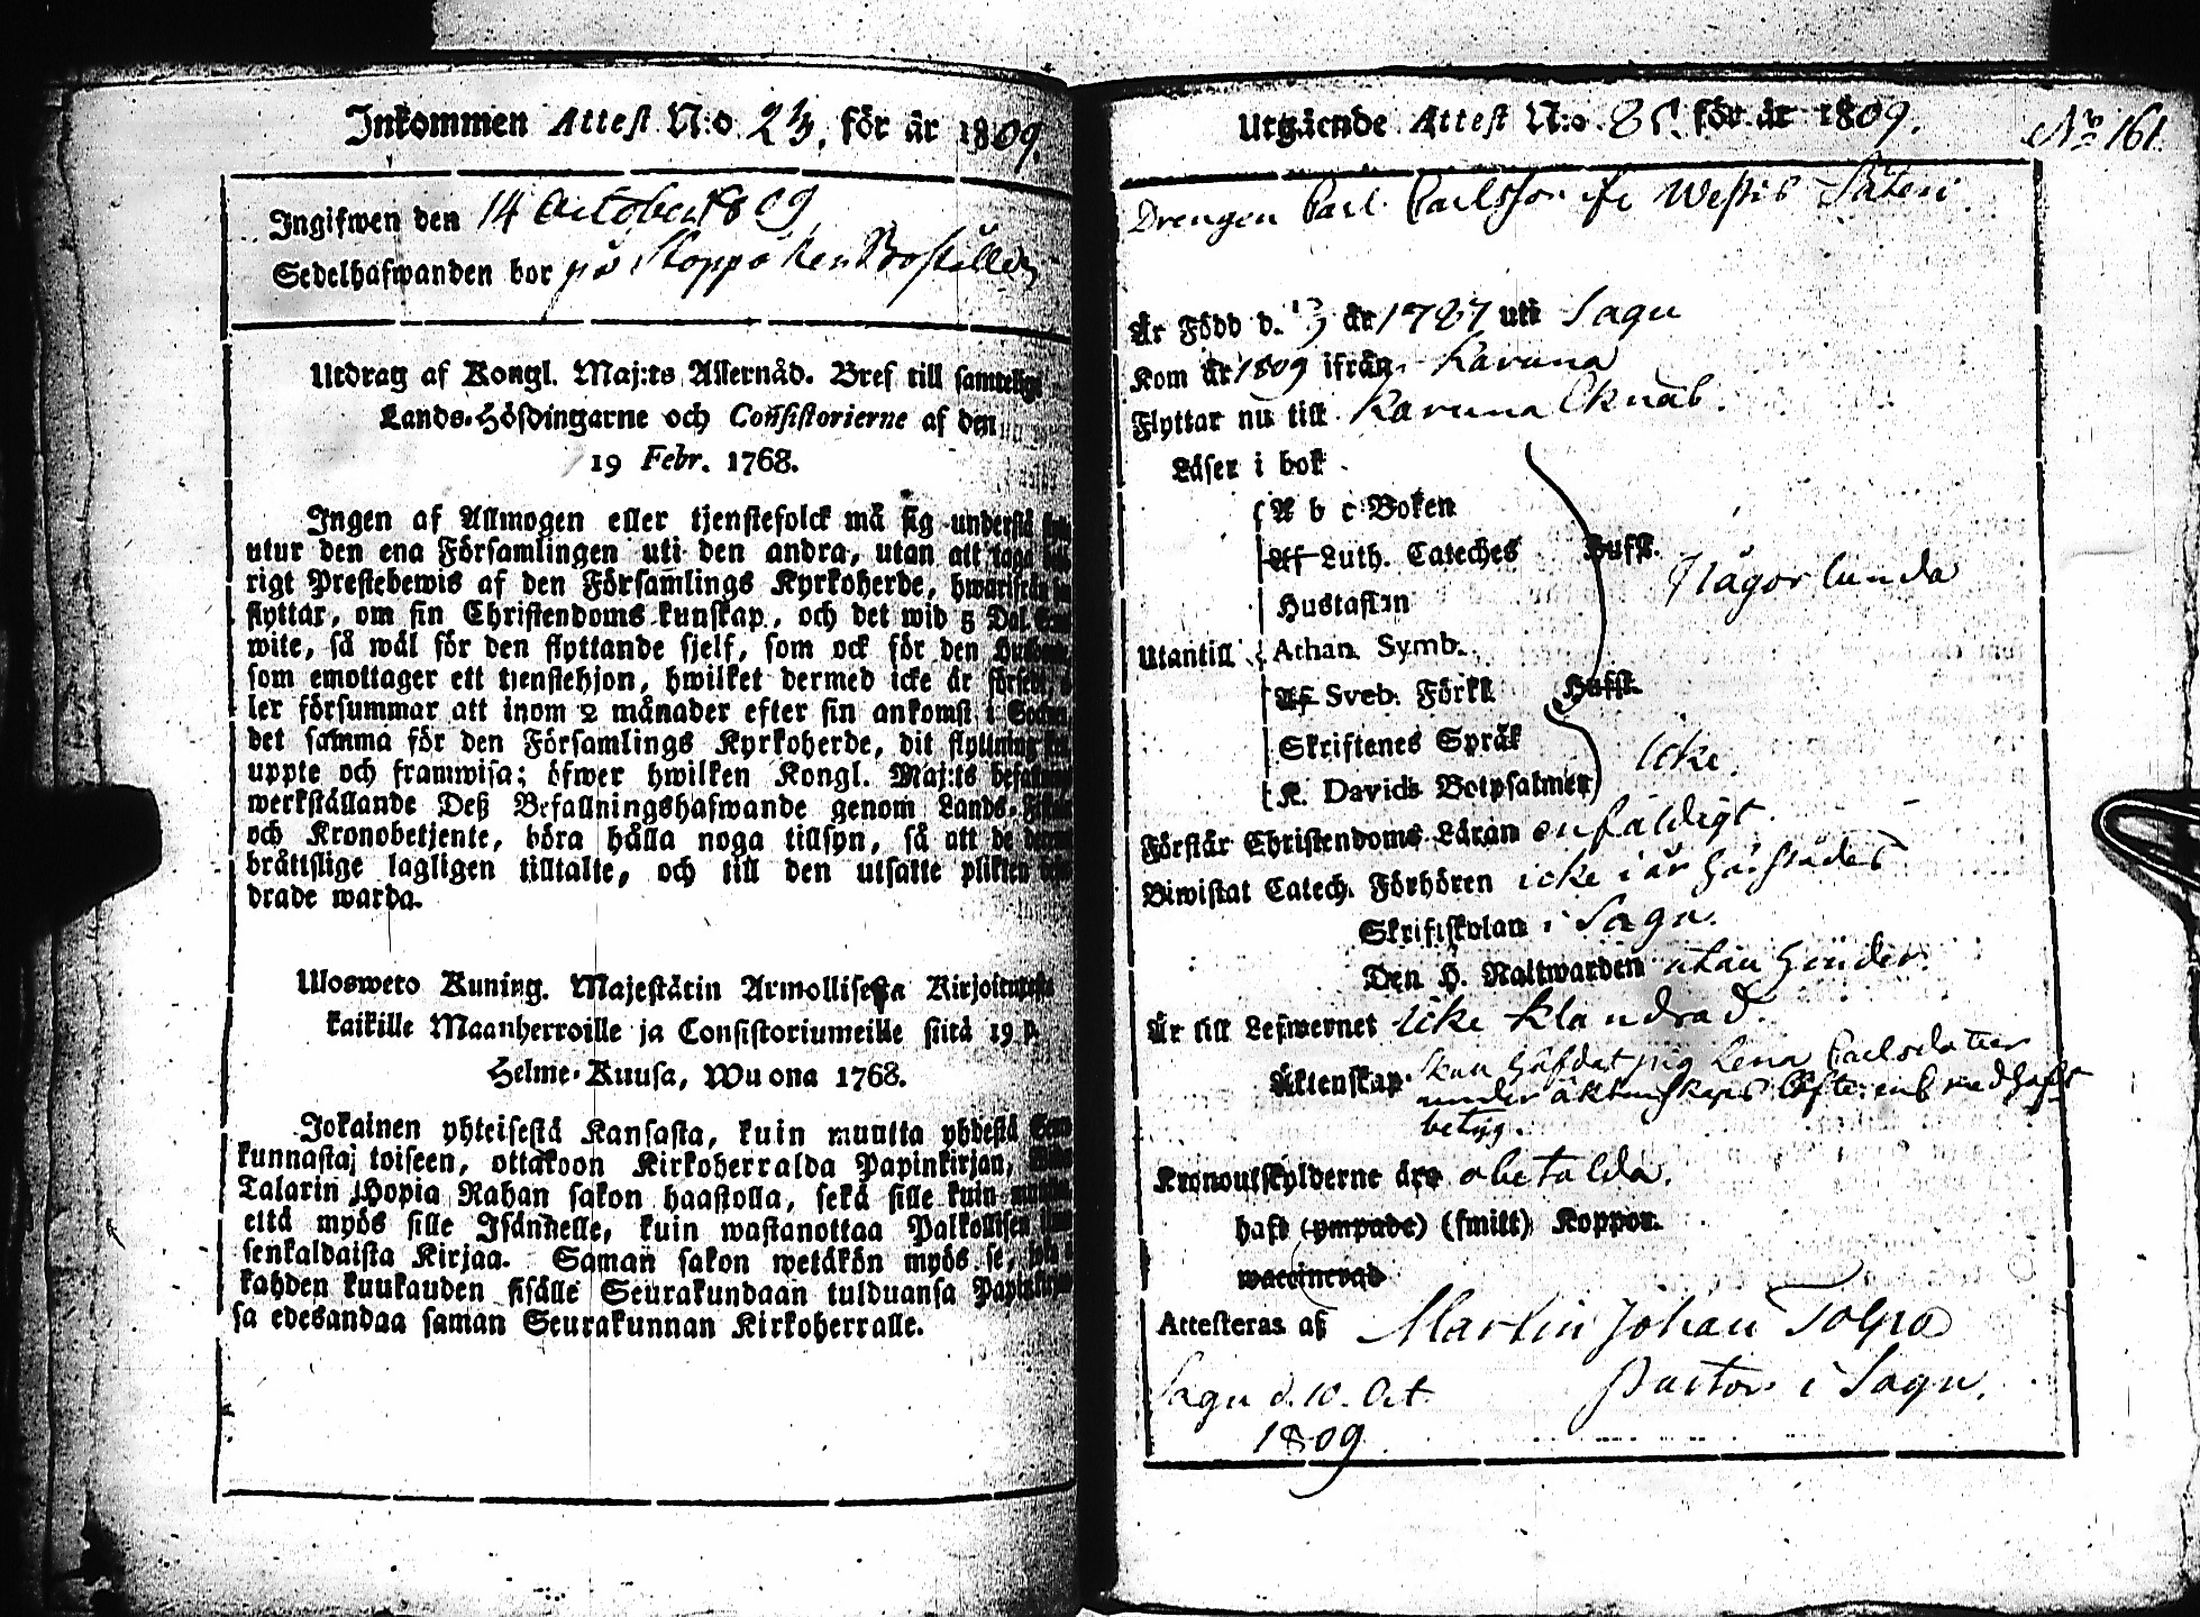 Inkommen Attest N:o 23. för år 1809.
Ingifwen den 14 October 1809
Sedelhafwanden bor på
Utdrag af Kongl. Maj:ts Allernåd. Bref till samtelige
Lands-Höfdingarne och Consistorierne af den
19 Febr. 1768.
Ingen af Allmogen eller tjenstefolck må sig understå
utur den ena Församlingen uti den andra, utan att taga
rigt Prestebewis af den Församlings Kyrkoherde, hwarifrån
flyttar, om sin Christendoms kunskap, och det wid 5 Dal.
wite, så wäl för den flyttande sjelf, som ock för den
som emottager ett tjenstehjon, hwilket dermed icke är försedt,
ler försummar att inom 2 månader efter sin ankomst i
det samma för den Församlings Kyrkoherde, dit flyttning
uppte och framwisa; öfwer hwilken Kongl. Maj:ts
werkställande Deß Befallningshafwande genom Lands-
och Kronobetjente, böra hålla noga tillsyn, så att de
bråttslige lagligen tilltalte, och till den utsatte plikten
drade warda.
Ulosweto Kuning. Majestätin Armollisesta Kirjoituxesta
kaikille Maanherroille ja Consistoriumeille siitä 19 p.
Helme-Kuusa, Wuona 1768.
Jokainen yhteisestä Kansasta, kuin muutta yhdestä
kunnasta toiseen, ottakoon Kirkoherralda Papinkirjan,
Talarin Hopia Rahan sakon haastolla, sekä sille kuin
että myös sille Isännelle, kuin wastanottaa Palkollisen
senkaldaista Kirjaa. Saman sakon wetäkön myös se,
kahden kuukauden sisälle Seurakundaan tulduansa
sa edesandaa saman Seurakunnan Kirkoherralle.
Utgående Attest N:o för år 1809. N:o 161.
Drengen Carl Carlsson ifr Westis Säteri
År Född d. år 1787 uti Sagu
Kom år 1809 ifrån Karuna
Flyttar nu till Karuna Eknäs.
Läser i bok
A b c Boken
Af Luth. Cateches Hufst.
Någorlunda
Hustaflan
Utantill Athan. Symb.
Af Sveb. Förkl. Hufst.
Skriftenes Språk
icke.
K. Davids Botpsalmer
Förstår Christendoms Läran enfaldigt.
Biwistat Catech. Förhören icke i år härstädes
Skriftskolan i Sagu.
Den H. Nattwarden utan hinder.
År till Lefwernet icke klandrad.
Äktenskap. skan häfdat pig Lena Carlsdotter
under äktenskaps löfte
betyg.
Kronoutskylderne äro obetalda.
haft (ympade) (smitt) Koppor.
waccinerad
Attesteras af Martin Johan Tolpo
Sagu d. 10. Oct. Pastor i Sagu.
1809